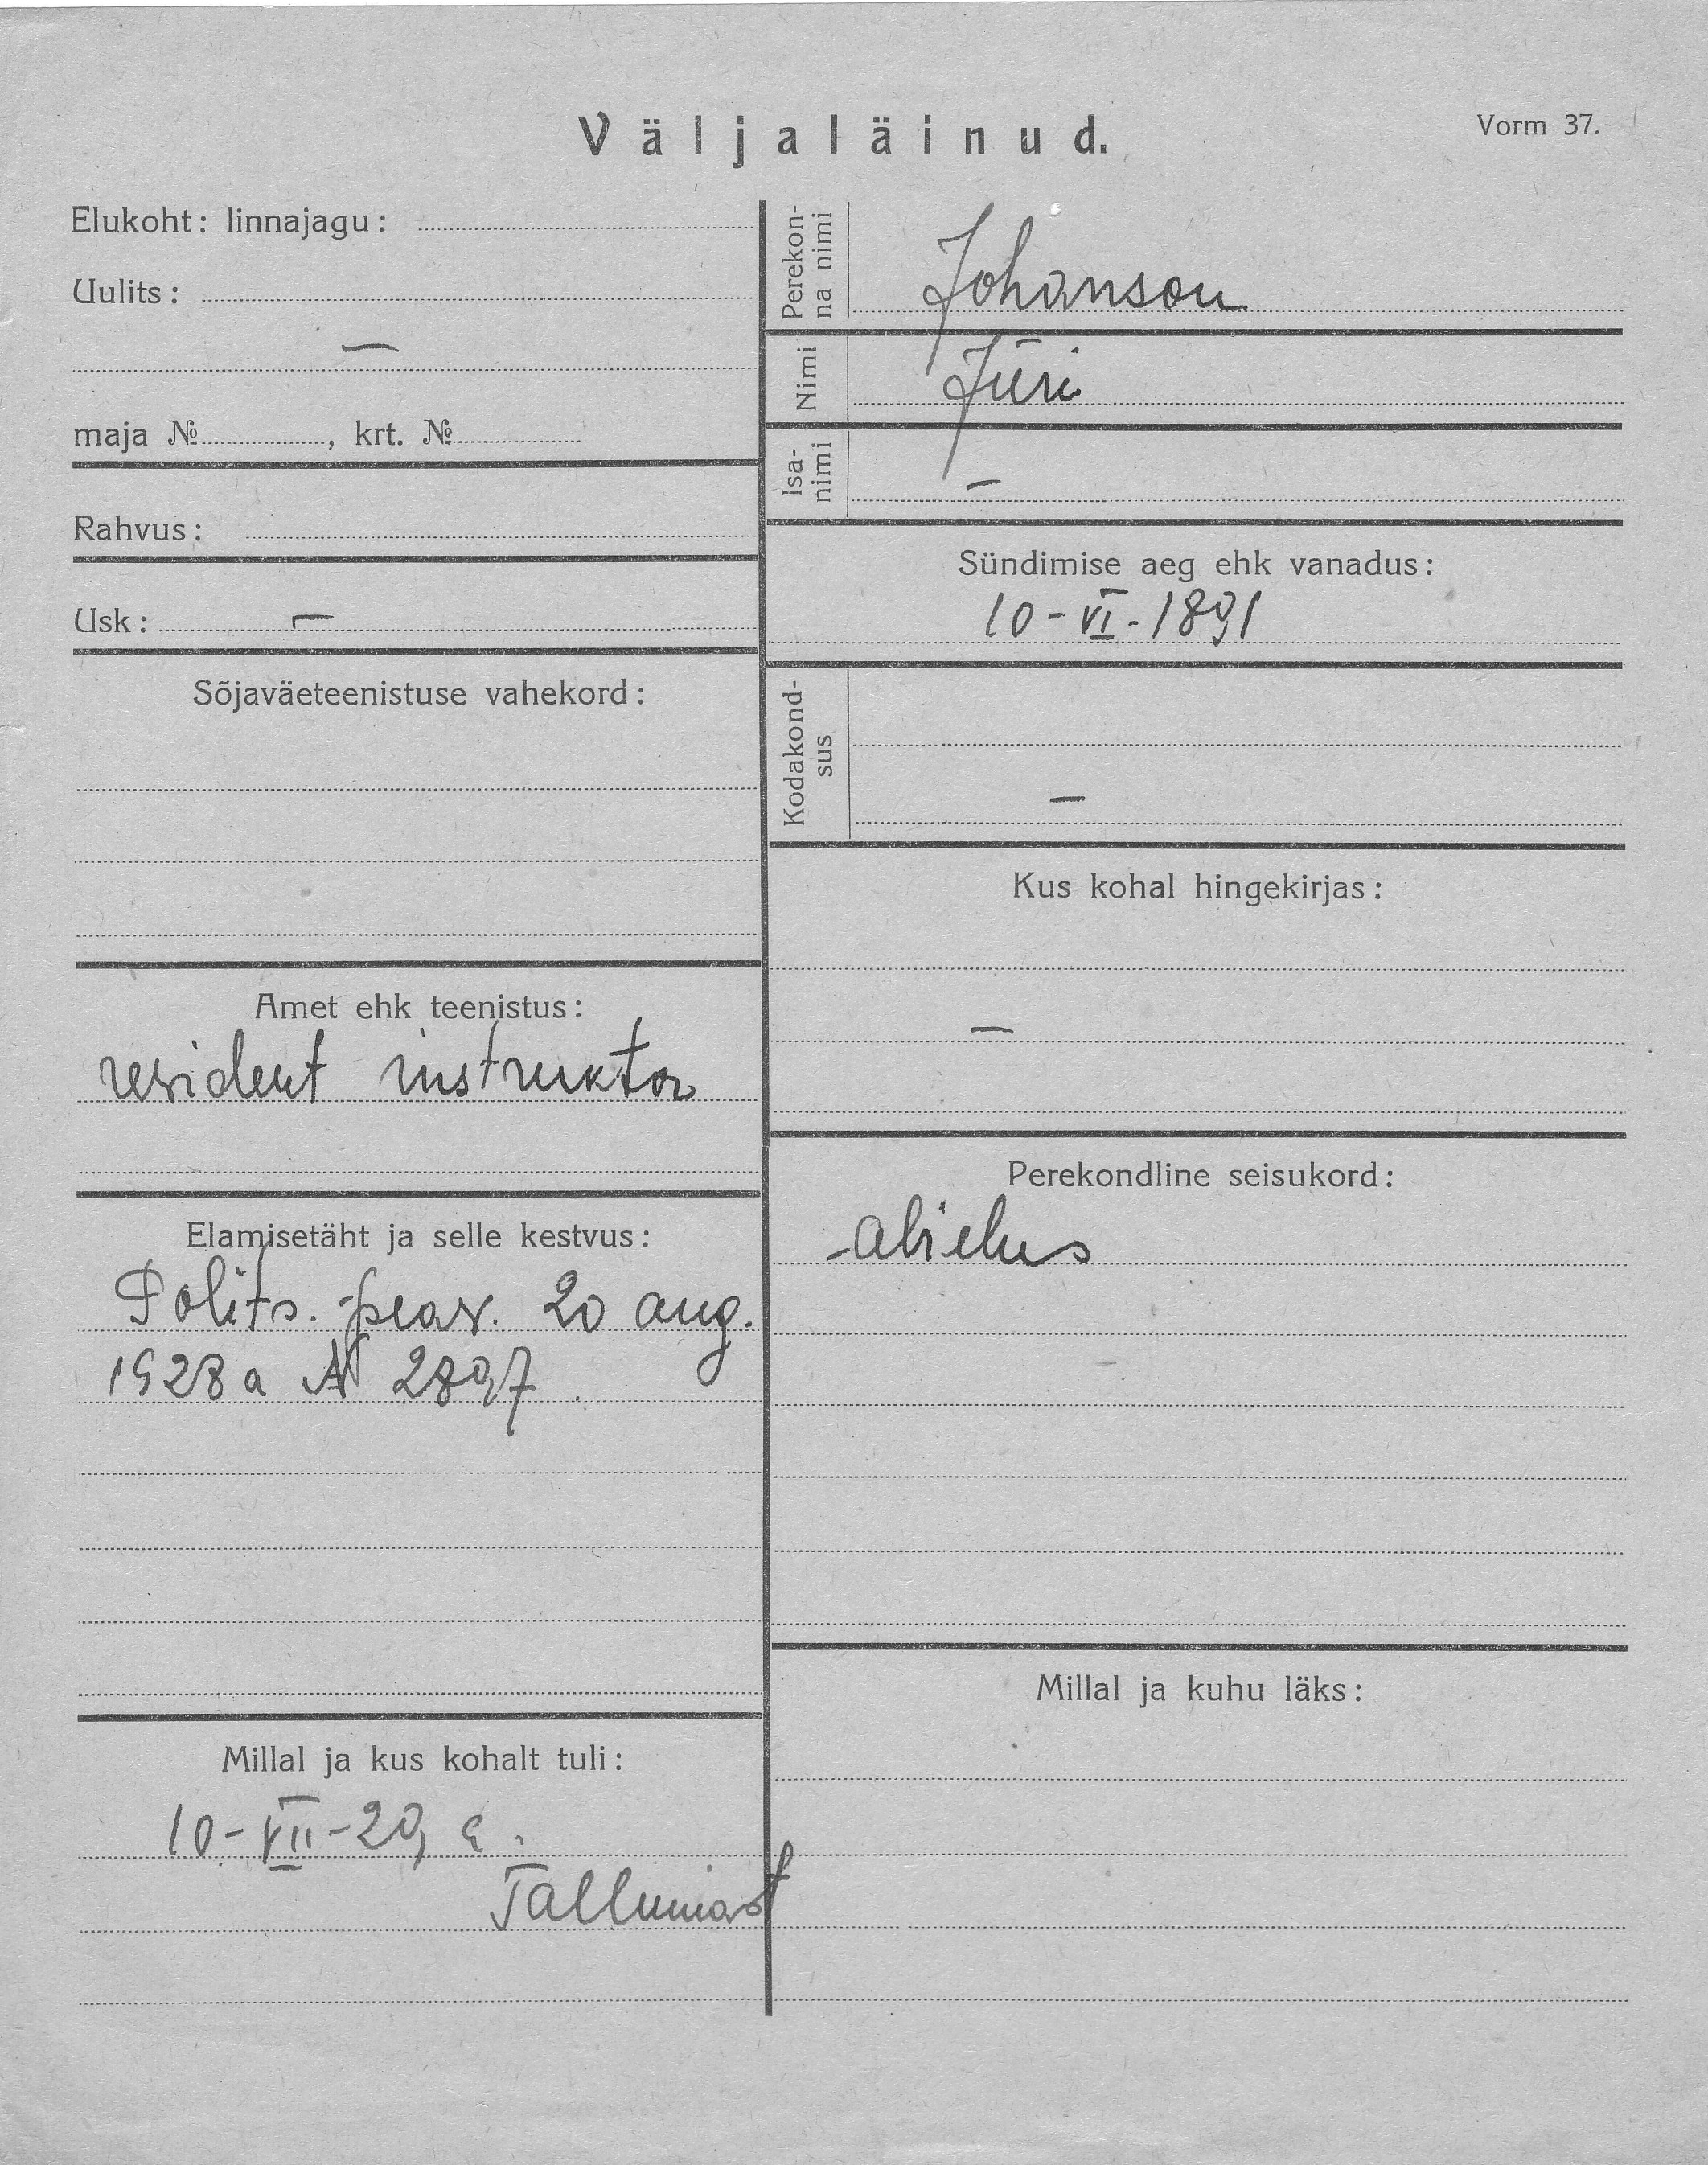 Väljaläinud.
Vorm 37.
Elukoht: linnajagu:
Uulits:
—
maja №, krt. №
Rahvus:
Usk: —
Sõjaväeteenistuse vahekord:
Amet ehk teenistus:
resident instruktor
Elamisetäht ja selle kestvus:
Polits. peav. 20 aug.
1928 a N 2897.
Millal ja kus kohalt tuli:
10-VII-29 a.
Tallinnast
Perekon-
na nimi
Johanson
Nimi
Jüri
Isa-
nimi
—
Sündimise aeg ehk vanadus:
10-VI-1891
Kodakond-
sus
—
Kus kohal hingekirjas:
—
Perekondline seisukord:
abielus
Millal ja kuhu läks: